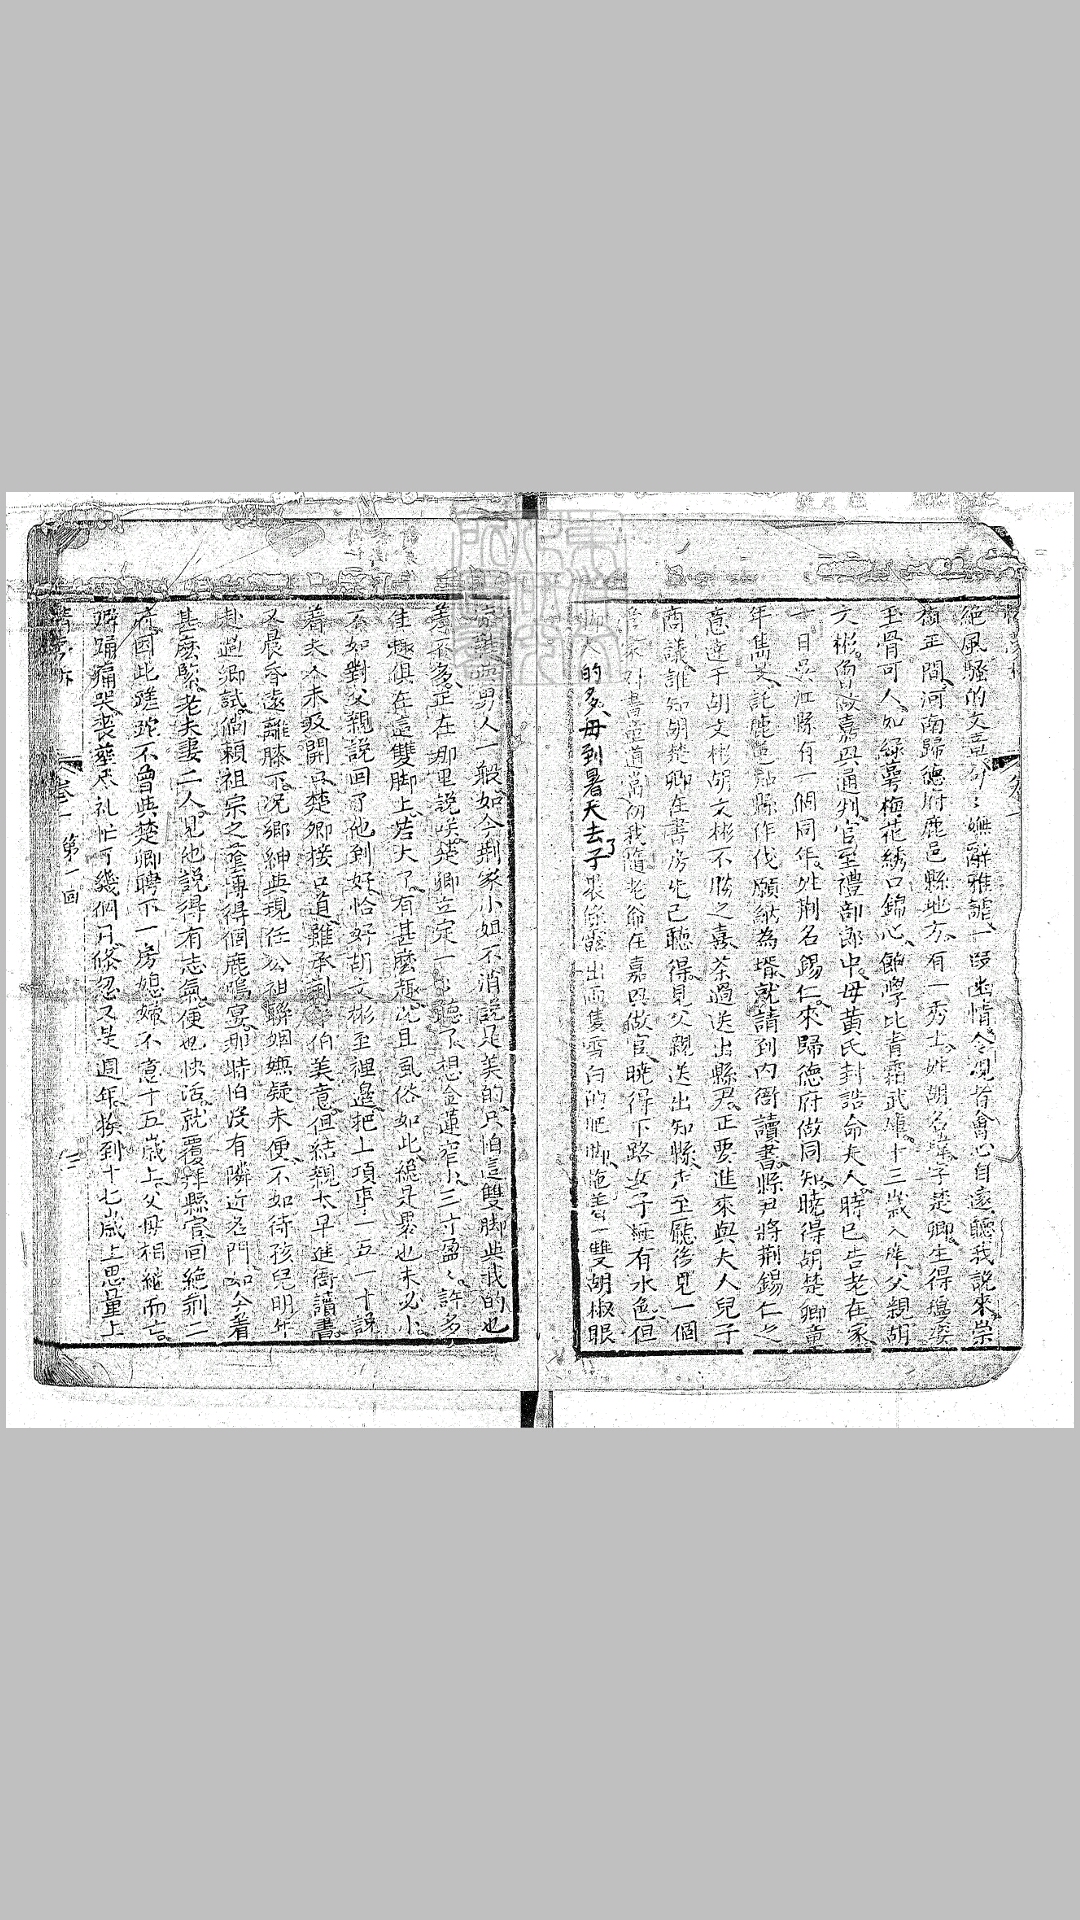 絕風騷的文章句句嫵辭雅謔一段幽情令观者會心自遠聽我說來崇
禎正間河南歸德府鹿邑縣地方有一秀士姓胡名子楚卿生得瓊姿
玉骨可人如綠萼梅花綉口錦心飽學比青霜武庫十三歲入泮父親胡
文彬曾做嘉興通判官至禮部郎中母黃氏封誥命夫人時已告老在家
一日吳江縣有一個同年姓荆名錫仁來歸德府做同知曉得胡楚卿童
年雋才託鹿邑知縣作伐願納為壻就請到內衙讀書縣尹將荆錫仁之
意達于胡文彬胡文彬不勝之喜茶過送出縣君正要進來與夫人兒子
商議誰知胡楚卿在書房先已聽得見父親送出知縣走至廳後見一個
對書童道當初我隨老爺在嘉興做官曉得下路女子極有水色但
脚大的多每到暑天去了子裹條露出兩隻雪白的肥脚拖着一雙胡椒眼
男人一般如今荆家小姐不消說是美的只怕這雙脚与我的也
差不多正在那里說笑楚卿立定一一聽了想金蓮窄小三寸盈盈許多
佳趣俱在這雙脚上若大了有甚麽趣况且風俗如此總是裹也未必小
不如對父親說回了他到好恰好胡文彬至裡邊把上項事一五一十說
着夫人未及開口楚卿接口道雖承荆年伯美意但結親太早進衙讀書
又晨昏遠離膝下况鄉紳与現任公祖聯姻嫌疑未便不如待孩兒明年
赴過鄉試倘賴祖宗之蔭博得個鹿鳴宴那時怕沒有隣近名門如今着
甚麽緊老夫妻二人見他說得有志氣便也快活就覆拜縣官回絕荆二
府因此蹉跎不曾与楚卿聘下一房媳婦不意十五歲上父母相繼而亡
擗踊痛哭喪葬尽礼忙了幾個月倏忽又是週年挨到十七歲上思量上
卷一 第一回 三